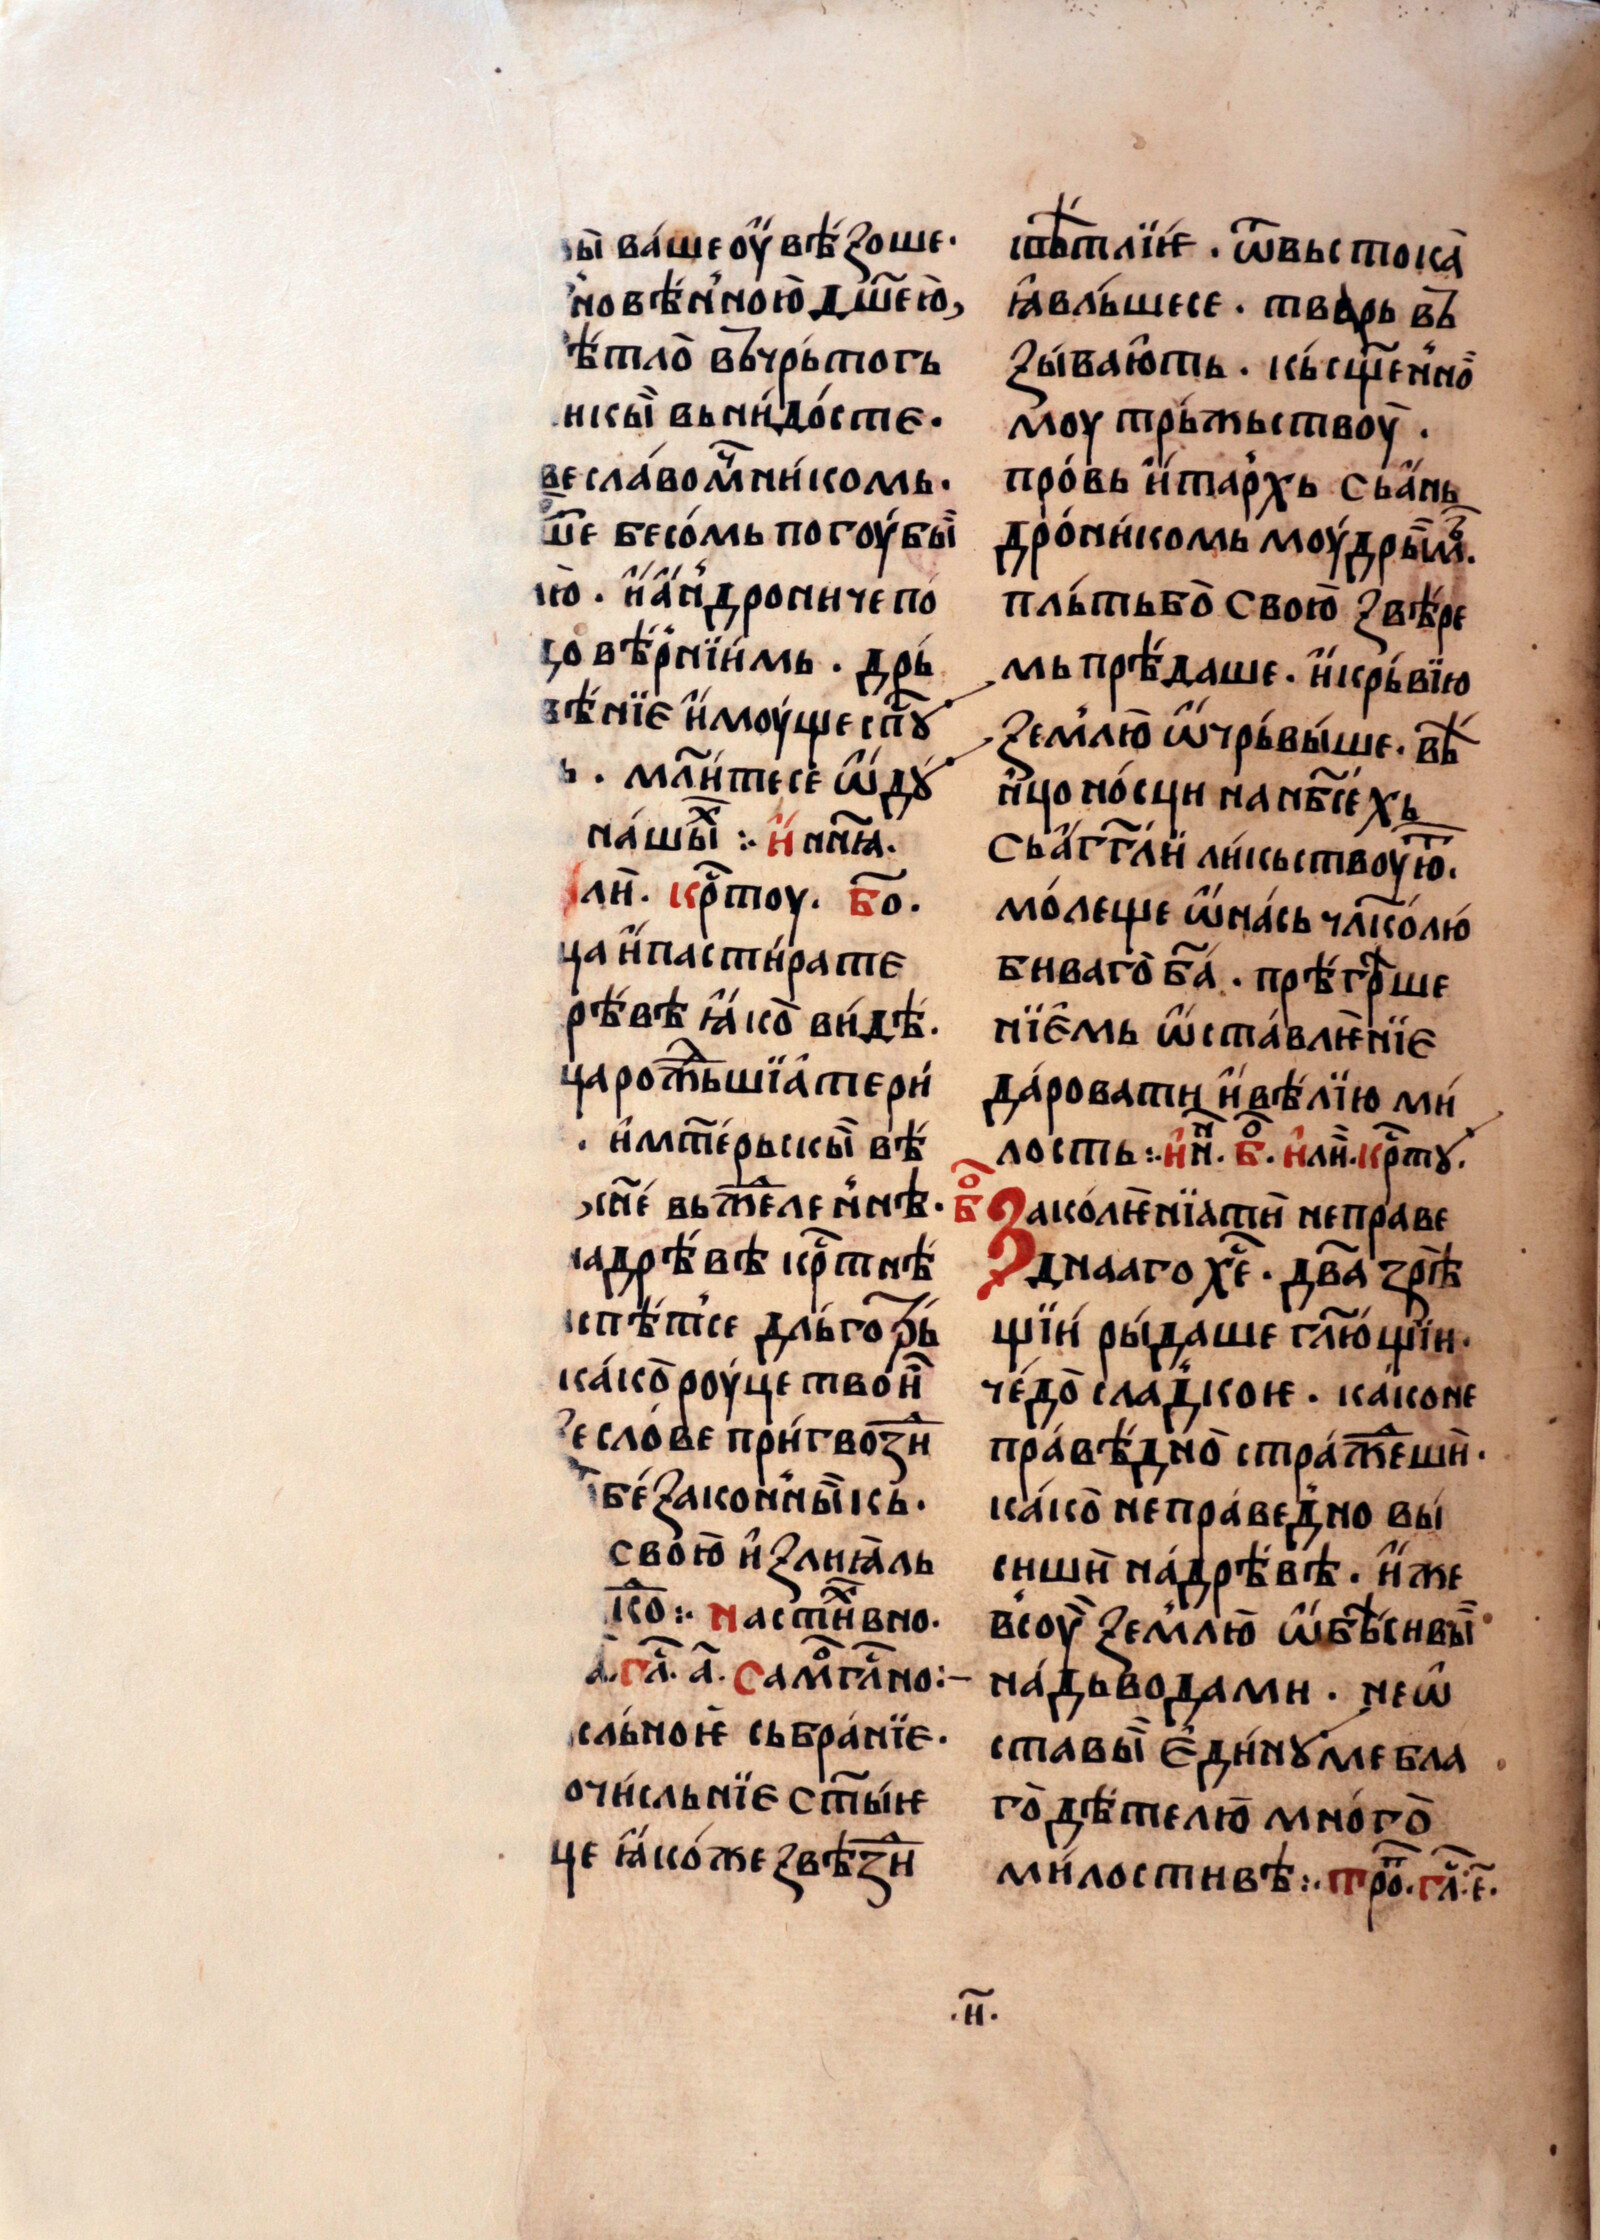 ы ваше оу вѣзоше·
новѣнною дш҃ею,
ѣтло вьчрьтогь
нскы вьнидосте·
ве славо мч҃никомь·
ше бесомь погоубы
ю · и андрониче по
цо вѣрнїимь · дрь
вѣнїе имоуще сп҃ꙋ
ь · мл҃итесе ѡ дꙋ
нашы^х :· и нн҃ꙗ·
лн· кр҃тоу· бо҃·
ца и пастира те
рѣвѣ ꙗко видѣ·
ца рождьшїа тери
· и мт҃ерьскы вѣ
сн҃е вьжделеннѣ·
на дрѣвѣ кр҃тнѣ
спѣтсе дльготрь
како роуце твои
е слове пригвозди
безаконныкь·
свою излиꙗль
ко:· на стх҃ивно·
а҃· гла҃· а҃· Самогла҃сно:–
сльноѥ сьбранїе·
очисльнїе ст҃ыѥ
це ꙗкоже звѣзди
свѣтлїѥ · ѿ вьстока
ꙗвльшесе · тварь вь
зывають · кь сщ҃енно
моу трьжьствоу ·
провь и тархь сь ань
дроникомь моудрым·
пльть бо свою звѣре
мь прѣдаше · и крьвїю
землю ѡчрьвыше· вѣ
нцоносци на нб҃сехь
сь агг҃ли ликьствоую҃т·
молеще ѡ нась чл҃колю
биваго ба҃ · прѣгрѣше
нїемь ѡставлѥнїе
даровати и вѣлїю ми
лость:· и нн҃· бо҃· и лн· кр҃тꙋ·
бо҃ Заколѥнїа ти неправе
днааго хе҃ · два҃ зрѣ
щїи рыдаше гл҃ющїи·
чедо сладкоѥ · како не
праведно стражеши·
како неправедно вы
сиши на дрѣвѣ · иже
всоу землю ѡбѣсивы
надь водами · не ѡ
ставы единꙋ ме бла
годѣтелю много
милостивѣ:· тро҃п· гл҃· е҃·
·н҃·